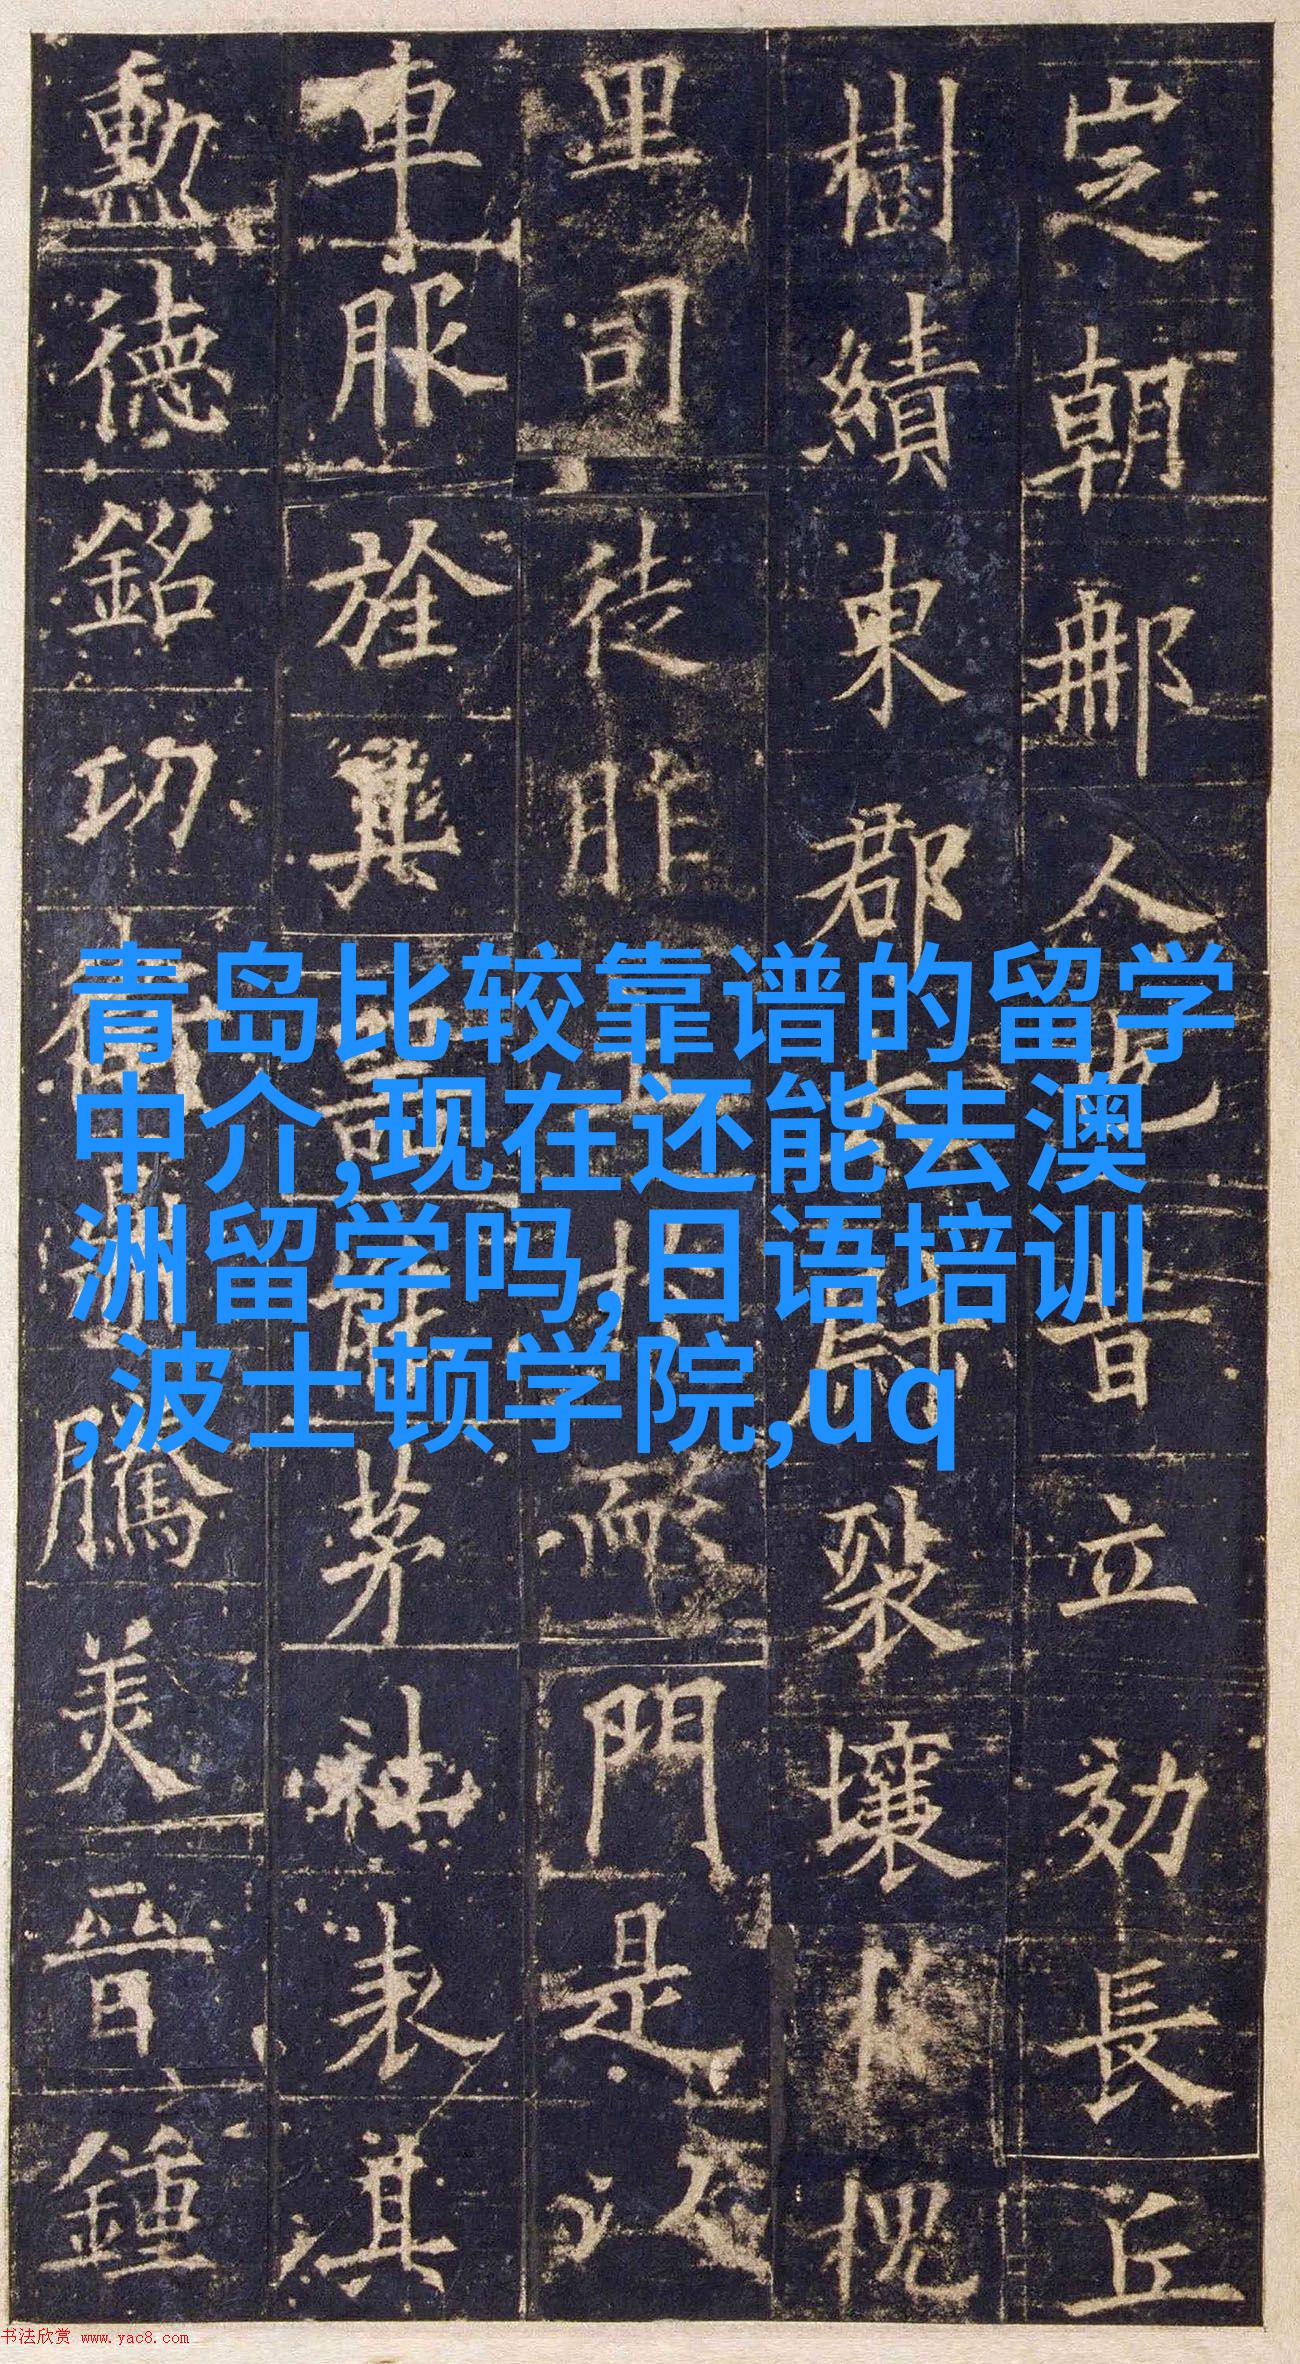 定朝那人也昔立効長丘
樹績東郡
裂壤槐
里司徒胙土
而門是
車服旌其器能茅社表其
勳德銘功衛鼎騰美晉鍾
青岛比较靠谱的留学
中介,现在还能去澳
洲留学吗,日语培训
,波士顿学院,uq
书法欣赏 www.yac8.com